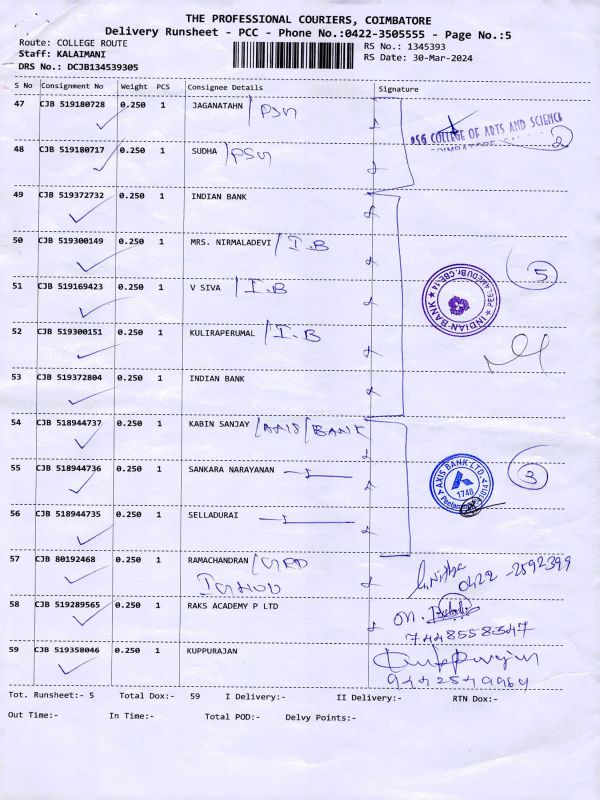 THE PROFESSIONAL COURIERS, COIMBATORE
Delivery Runsheet - PCC - Phone No.:0422-3505555 - Page No.:5
Route: COLLEGE ROUTE RS No.: 1345393
Staff: KALAIMANI RS Date: 30-Mar-2024
DRS No.: DCJB134539305
S No Consignment No Weight PCS Consignee Details Signature
47 CJB 519180728 0.250 1 JAGANATAHN / PSG
PSG COLLEGE OF ARTS AND SCIENCE
2
48 CJB 519180717 0.250 1 SUDHA / PSG
49 CJB 519372732 0.250 1 INDIAN BANK
50 CJB 519300149 0.250 1 MRS. NIRMALADEVI / I.B
5
51 CJB 519169423 0.250 1 V SIVA / I.B
INDIAN BANK
52 CJB 519300151 0.250 1 KULIRAPERUMAL / I.B
53 CJB 519372804 0.250 1 INDIAN BANK
54 CJB 518944737 0.250 1 KABIN SANJAY / AXIS / BANK
55 CJB 518944736 0.250 1 SANKARA NARAYANAN
AXIS BANK LTD.
1748
3
56 CJB 518944735 0.250 1 SELLADURAI
57 CJB 80192468 0.250 1 RAMACHANDRAN / GRD
0422 - 2592399
58 CJB 519289565 0.250 1 RAKS ACADEMY P LTD
7448558347
59 CJB 519358046 0.250 1 KUPPURAJAN
Kuppurajan
9442549964
Tot. Runsheet:- 5 Total Dox:- 59 I Delivery:- II Delivery:- RTN Dox:-
Out Time:- In Time:- Total POD:- Delvy Points:-